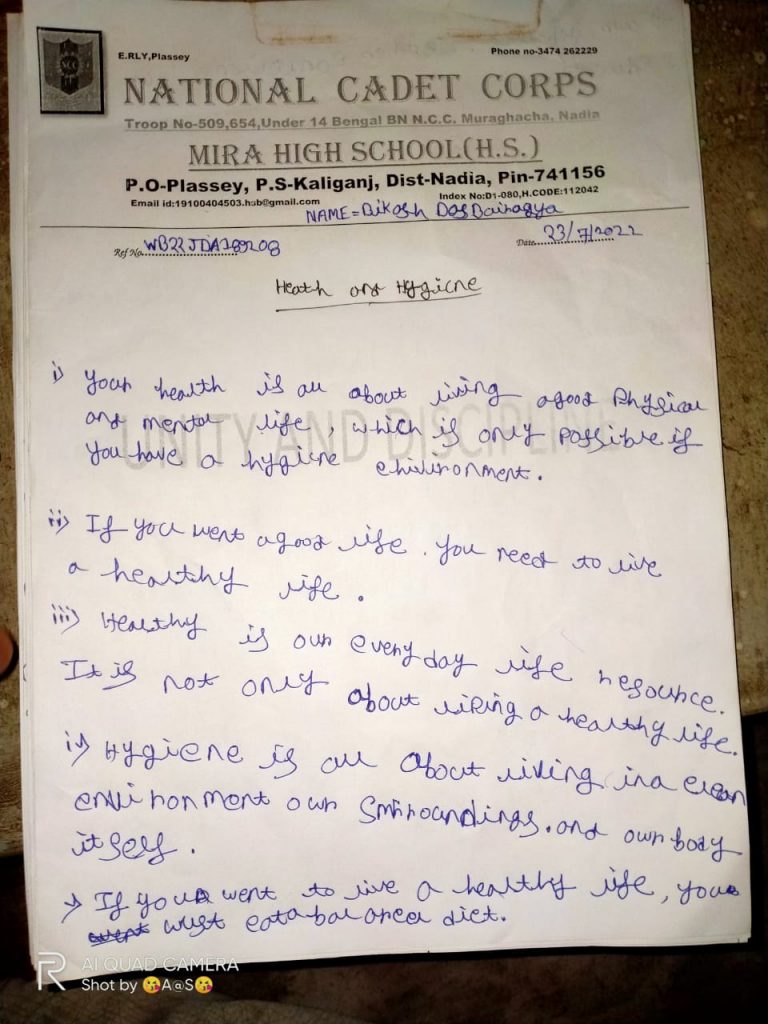 E.RLY,Plassey
Phone no-3474 262229
NCC
NATIONAL CADET CORPS
Troop No-509,654,Under 14 Bengal BN N.C.C. Muraghacha, Nadia
MIRA HIGH SCHOOL(H.S.)
P.O-Plassey, P.S-Kaliganj, Dist-Nadia, Pin-741156
Email id:19100404503.hsb@gmail.com
Index No:D1-080,H.CODE:112042
NAME=Bikash Das Bairagya
Ref No.
Date 23/7/2022
Heath and Hygiene
UNITY AND DISCIPLINE
i) Your health is all about living a good Physical
and mental life, which is only possible if
you have a hygiene environment.
ii) If you went a good life. you need to live
a healthy life.
iii) Healthy is our every day life resource.
It is not only about living a healthy life.
iv) Hygiene is all about living in a clean
environment our surroundings. and our body
itself.
If you went to live a healthy life, you
must eat a balanced diet.
AI QUAD CAMERA
Shot by 😘A@S😘